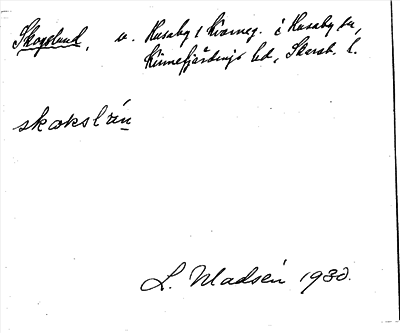 Skogslund, u. Husaby 1 Kvarneg. i Husaby sn,
Kinnefjärdings hd, Skarab. l.
skɷkslṙn̲
L. Madsén 1930.